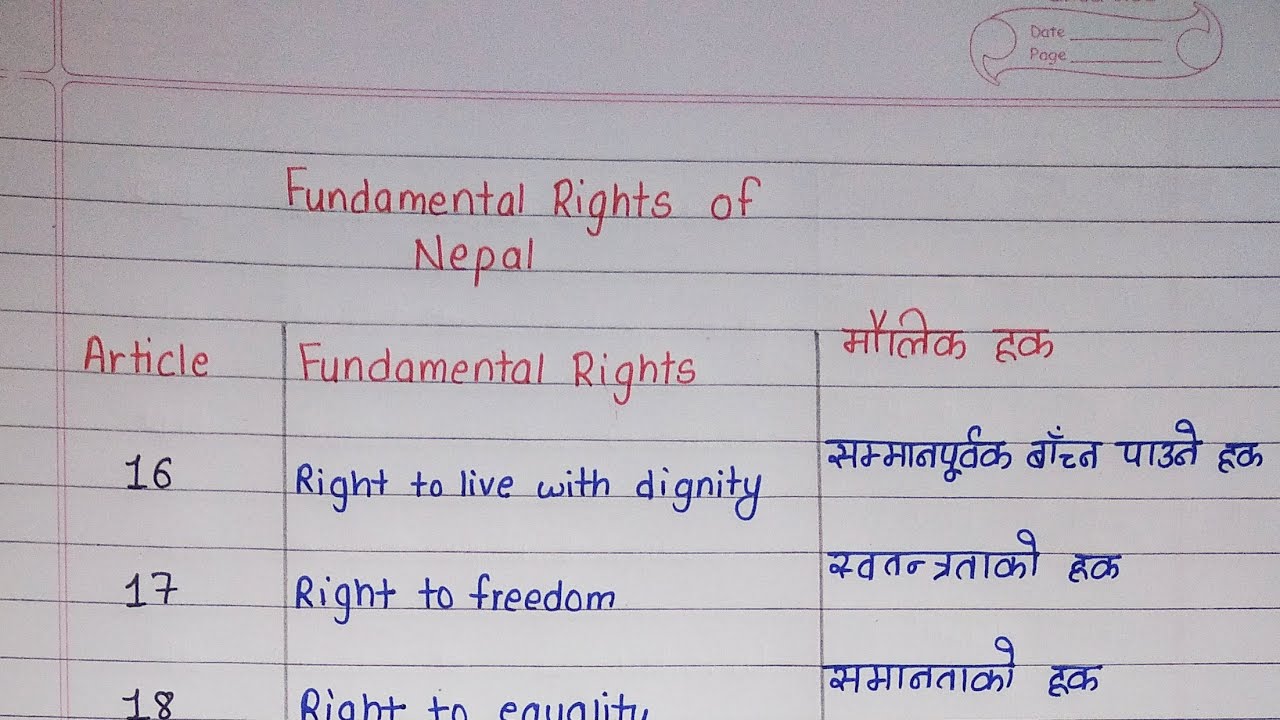 Date
Page
Fundamental Rights of
Nepal
Article Fundamental Rights मौलिक हक
16 Right to live with dignity सम्मानपूर्वक बाँच्न पाउने हक
17 Right to freedom स्वतन्त्रताको हक
18 Right to equality समानताको हक